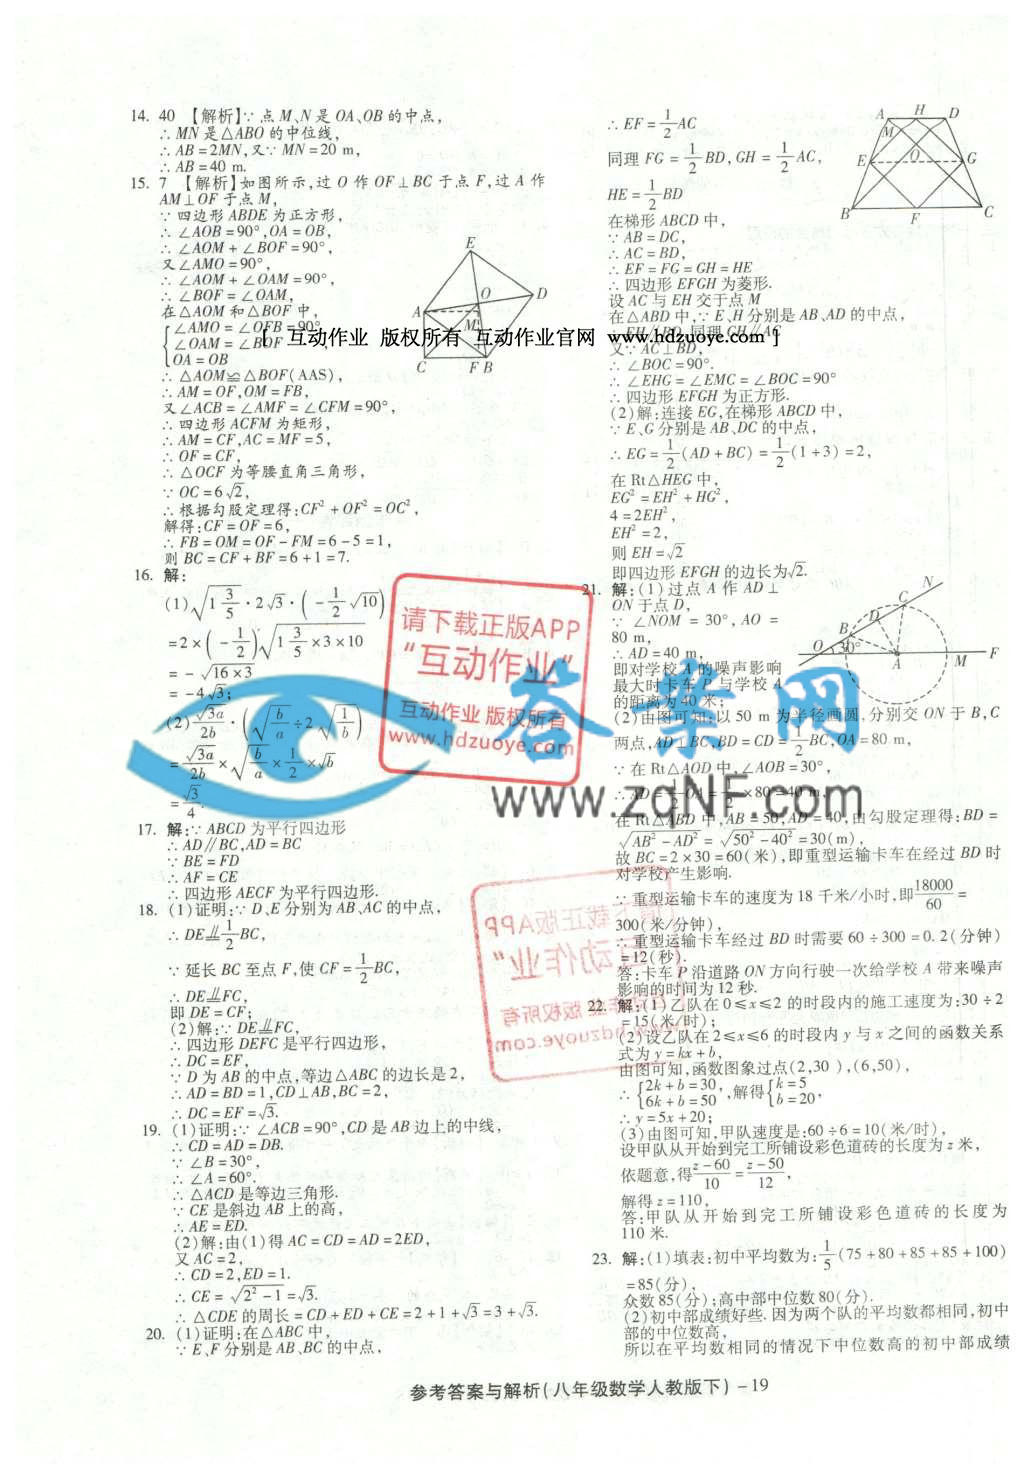 14. 40 【解析】∵ 点 M、N 是 OA、OB 的中点,
∴ MN 是△ABO 的中位线,
∴ AB = 2MN, 又∵ MN = 20 m,
∴ AB = 40 m.
15. 7 【解析】如图所示,过 O 作 OF⊥BC 于点 F,过 A 作
AM⊥OF 于点 M,
∵ 四边形 ABDE 为正方形,
∴ ∠AOB = 90°, OA = OB,
∴ ∠AOM + ∠BOF = 90°,
又∠AMO = 90°,
∴ ∠AOM + ∠OAM = 90°,
∴ ∠BOF = ∠OAM,
在△AOM 和△BOF 中,
∠AMO = ∠OFB = 90°
∠OAM = ∠BOF
OA = OB
∴ △AOM≌△BOF(AAS),
∴ AM = OF, OM = FB,
又∠ACB = ∠AMF = ∠CFM = 90°,
∴ 四边形 ACFM 为矩形,
∴ AM = CF, AC = MF = 5,
∴ OF = CF,
∴ △OCF 为等腰直角三角形,
∵ OC = 6√2,
∴ 根据勾股定理得: CF² + OF² = OC²,
解得: CF = OF = 6,
∴ FB = OM = OF - FM = 6 - 5 = 1,
则 BC = CF + BF = 6 + 1 = 7.
E
O
D
A
M
C F B
16. 解:
(1) √(1 3/5) · 2√3 · (-1/2 √10)
= 2 × (-1/2) √(1 3/5 × 3 × 10)
= -√(16×3)
= -4√3;
(2) √3a/2b · (√(b/a) ÷ 2√(1/b))
= √3a/2b × √(b/a) × 1/2 × √b
= √3/4.
17. 解:∵ ABCD 为平行四边形
∴ AD∥BC, AD = BC
∵ BE = FD
∴ AF = CE
∴ 四边形 AECF 为平行四边形.
18. (1)证明:∵ D、E 分别为 AB、AC 的中点,
∴ DE ∥= 1/2 BC,
∵ 延长 BC 至点 F,使 CF = 1/2 BC,
∴ DE ∥= FC,
即 DE = CF;
(2)解:∵ DE ∥= FC,
∴ 四边形 DEFC 是平行四边形,
∴ DC = EF,
∵ D 为 AB 的中点,等边△ABC 的边长是 2,
∴ AD = BD = 1, CD⊥AB, BC = 2,
∴ DC = EF = √3.
19. (1)证明:∵ ∠ACB = 90°, CD 是 AB 边上的中线,
∴ CD = AD = DB.
∵ ∠B = 30°,
∴ ∠A = 60°.
∴ △ACD 是等边三角形.
∵ CE 是斜边 AB 上的高,
∴ AE = ED.
(2)解:由(1)得 AC = CD = AD = 2ED,
又 AC = 2,
∴ CD = 2, ED = 1.
∴ CE = √(2² - 1) = √3.
∴ △CDE 的周长 = CD + ED + CE = 2 + 1 + √3 = 3 + √3.
20. (1)证明:在△ABC 中,
∵ E、F 分别是 AB、BC 的中点,
∴ EF = 1/2 AC
同理 FG = 1/2 BD, GH = 1/2 AC,
HE = 1/2 BD
在梯形 ABCD 中,
∵ AB = DC,
∴ AC = BD,
∴ EF = FG = GH = HE
∴ 四边形 EFGH 为菱形.
设 AC 与 EH 交于点 M
在△ABD 中,∵ E、H 分别是 AB、AD 的中点,
∴ EH∥BD, 同理 GH∥AC
又∵ AC⊥BD,
∴ ∠BOC = 90°.
∴ ∠EHG = ∠EMC = ∠BOC = 90°
∴ 四边形 EFGH 为正方形.
(2)解:连接 EG,在梯形 ABCD 中,
∵ E、G 分别是 AB、DC 的中点,
∴ EG = 1/2 (AD + BC) = 1/2 (1 + 3) = 2,
在 Rt△HEG 中,
EG² = EH² + HG²,
4 = 2EH²,
EH² = 2,
则 EH = √2
即四边形 EFGH 的边长为√2.
A H D
M
E O G
B F C
21. 解:(1)过点 A 作 AD⊥
ON 于点 D,
∵ ∠NOM = 30°, AO =
80 m,
∴ AD = 40 m,
即对学校 A 的噪声影响
最大时卡车 P 与学校 A
的距离为 40 米;
N
C
D
B
O 30°
A M F
(2)由图可知:以 50 m 为半径画圆,分别交 ON 于 B、C
两点, AD⊥BC, BD = CD = 1/2 BC, OA = 80 m,
∵ 在 Rt△AOD 中, ∠AOB = 30°,
∴ AD = 1/2 OA = 1/2 × 80 = 40 m,
在 Rt△ABD 中, AB = 50, AD = 40, 由勾股定理得: BD =
√(AB² - AD²) = √(50² - 40²) = 30(m),
故 BC = 2 × 30 = 60(米),即重型运输卡车在经过 BD 时
对学校产生影响.
∵ 重型运输卡车的速度为 18 千米/小时,即 18000/60 =
300(米/分钟),
∴ 重型运输卡车经过 BD 时需要 60 ÷ 300 = 0.2(分钟)
= 12(秒).
答:卡车 P 沿道路 ON 方向行驶一次给学校 A 带来噪声
影响的时间为 12 秒.
22. 解:(1)乙队在 0≤x≤2 的时段内的施工速度为:30 ÷ 2
= 15(米/时);
(2)设乙队在 2≤x≤6 的时段内 y 与 x 之间的函数关系
式为 y = kx + b,
由图可知,函数图象过点(2,30),(6,50),
∴ {2k + b = 30, 6k + b = 50 ,解得{k = 5 b = 20,
∴ y = 5x + 20;
(3)由图可知,甲队速度是:60 ÷ 6 = 10(米/时),
设甲队从开始到完工所铺设彩色道砖的长度为 z 米,
依题意,得 z-60/10 = z-50/12,
解得 z = 110,
答:甲队从开始到完工所铺设彩色道砖的长度为
110 米.
23. 解:(1)填表:初中平均数为: 1/5 (75 + 80 + 85 + 85 + 100)
= 85(分),
众数 85(分);高中部中位数 80(分).
(2)初中部成绩好些.因为两个队的平均数都相同,初中
部的中位数高,
所以在平均数相同的情况下中位数高的初中部成绩
[ 互动作业 版权所有 互动作业官网 www.hdzuoye.com ]
请下载正版APP
“互动作业”
互动作业 版权所有
www.hdzuoye.com
答案网
www.zqNF.com
请下载正版APP
“互动作业”
互动作业 版权所有
www.hdzuoye.com
参考答案与解析(八年级数学人教版下) - 19